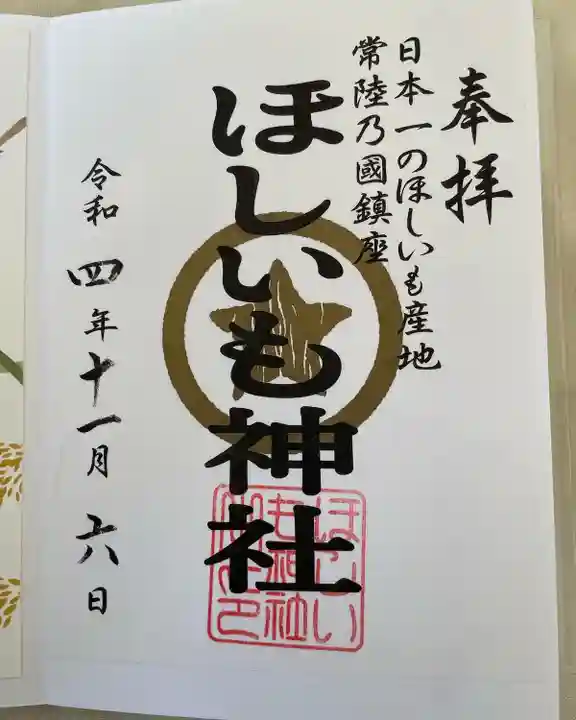 奉拝
日本一のほしいも産地
常陸乃國鎮座
ほしいも神社
令和四年十一月六日